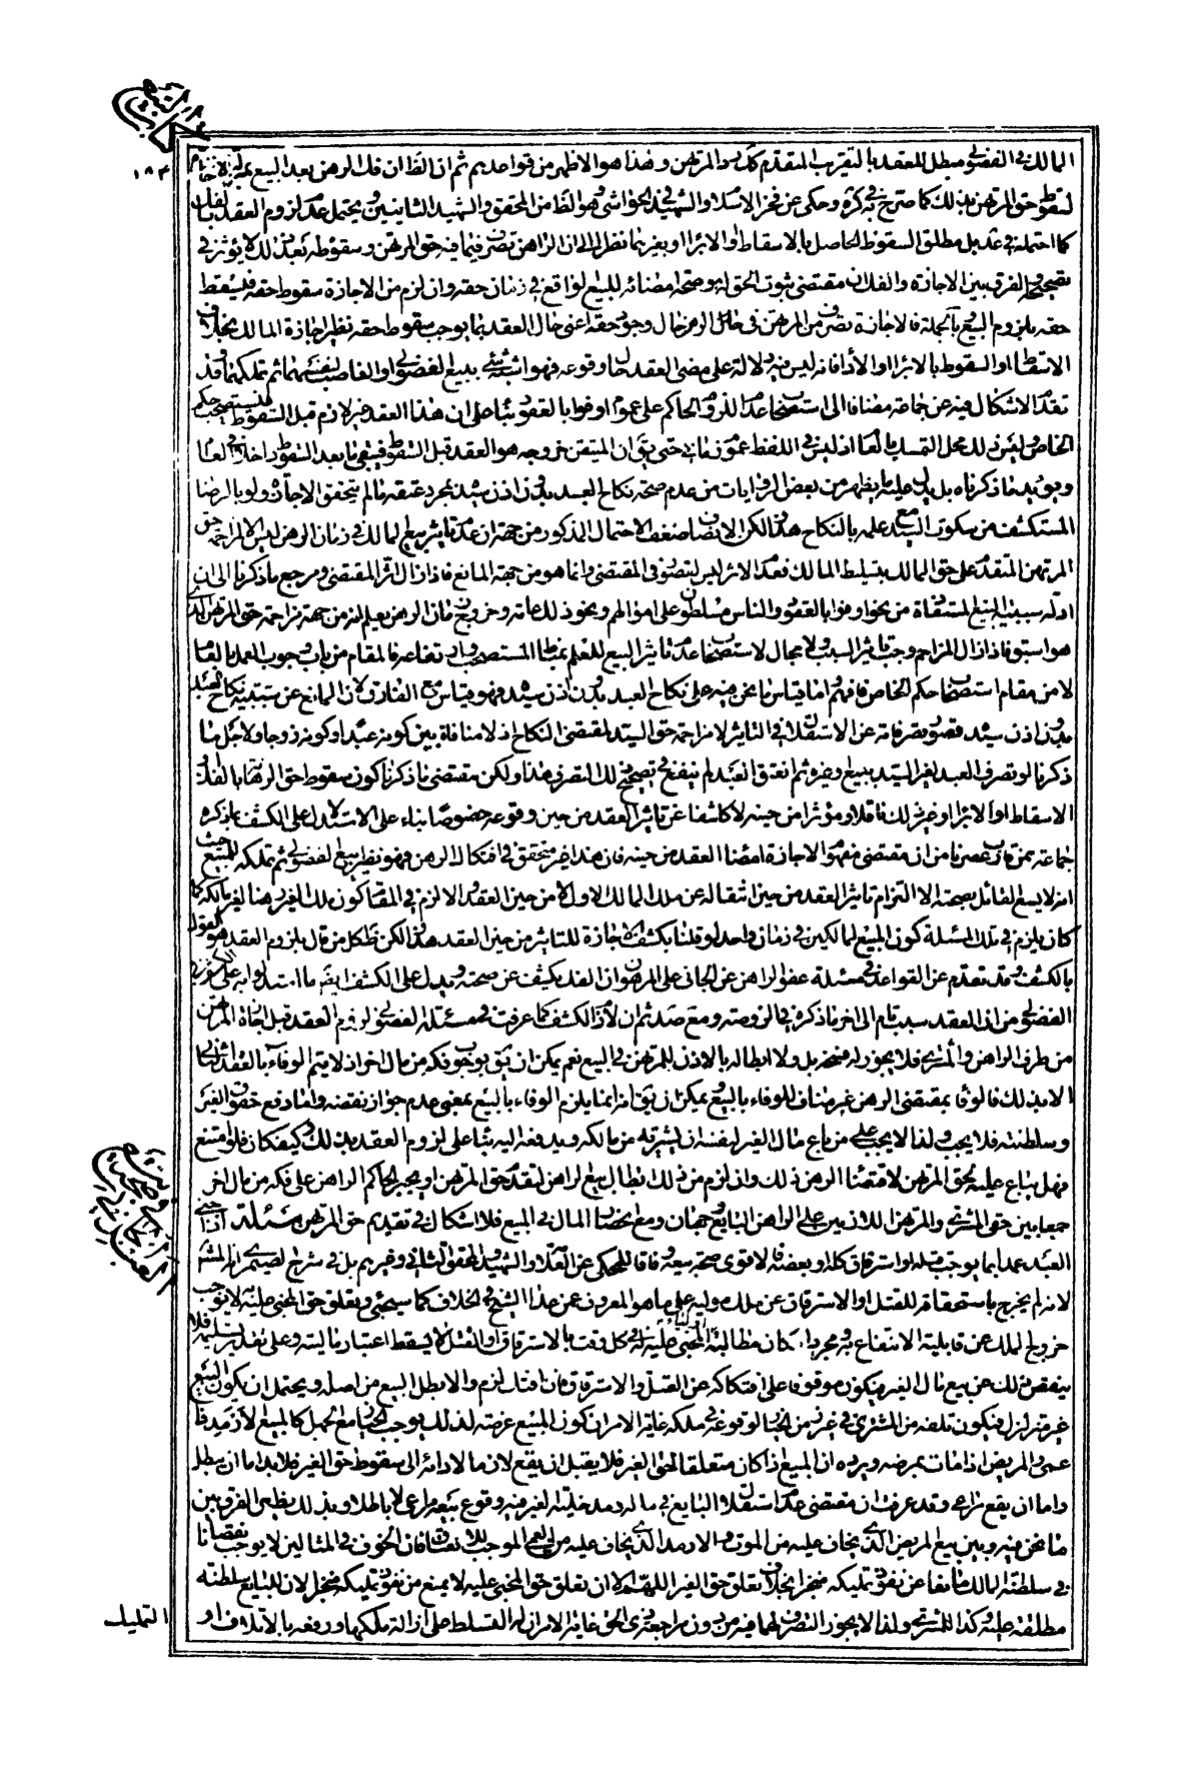 ١٨٣
المالك في الفضولي مبطل للعقد بالتقريب المتقدم كك رد المرتهن وهذا هو الاظهر من قواعدهم ثم ان الظ ان فك الرهن بعد البيع بمنزلة الاجازة
لسقوط حق المرتهن بذلك كما صرح في كره وحكى عن فخر الاسلام والشهيد في الحواشي وهو الظ من المحقق والشهيد الثانيين ويحتمل عدم لزوم العقد بالفك
كما احتمله في عد بل بمطلق السقوط الحاصل بالاسقاط او الابراء او بغيرهما نظرا الى ان الراهن تصرف فيما فيه حق المرتهن وسقوطه بعد ذلك لا يؤثر في
تصحيحه والفرق بين الاجازة والفك ان مقتضى ثبوت الحق له هو صحة امضائه للبيع الواقع في زمان حقه وان لزم من الاجازة سقوط حقه فيسقط
حقه بلزوم البيع وبالجملة فالاجازة تصرف من المرتهن في الرهن حال وجود حقه اعني حال العقد بما يوجب سقوط حقه نظير اجازة المالك بخلاف
الاسقاط او السقوط بالابراء او الأداء فانه ليس فيه دلالة على مضى العقد حال وقوعه فهو اشبه شيئ ببيع الفضولي او الغاصب لنفسهما ثم تملكهما وقد
تقدم الاشكال فيه عن جماعة مضافا الى استصحاب عدم اللزوم الحاكم على عموم اوفوا بالعقود بناء على ان هذا العقد غير لازم قبل السقوط فيستصحب حكم
الخاص وليس ذلك محل التمسك بالعام اذ ليس في اللفظ عموم زماني حتى يق ان المتيقن خروجه هو العقد قبل السقوط فيبقى ما بعد السقوط داخلا في العام
ويؤيد ما ذكرناه بل يدل عليه ما يظهر من بعض الروايات من عدم صحة نكاح العبد بدون اذن سيده بمجرد عتقه ما لم يتحقق الاجازة ولو بالرضا
المستكشف من سكوت السيد مع علمه بالنكاح هذا ولكن الانصاف ضعف الاحتمال المذكور من جهة ان عدم تاثير بيع المالك في زمان الرهن ليس الا لمزاحمة حق
المرتهن المتقدم على حق المالك بتسليط المالك فعدم الاثر ليس لقصور في المقتضى وانما هو من جهة المانع فاذا زال اثر المقتضى ومرجع ما ذكرنا الى ان
ادلة سببية البيع المستفادة من نحو اوفوا بالعقود والناس مسلطون على اموالهم ونحو ذلك عامة وخروج زمان الرهن يعلم انه من جهة مزاحمة حق المرتهن الذي
هو اسبق فاذا زال المزاحم وجب تاثير السبب ولا مجال لاستصحاب عدم تاثير البيع للعلم بمناط المستصحب وارتفاعه فالمقام من باب وجوب العمل بالعام
لا من مقام استصحاب حكم الخاص فافهم واما قياس ما نحن فيه على نكاح العبد بدون اذن سيده فهو قياس مع الفارق لان المانع عن سببية نكاح العبد
بدون اذن سيده قصور تصرفاته عن الاستقلال في التاثير لا مزاحمة حق السيد لمقتضى النكاح اذ لا منافاة بين كونه عبدا وكونه زوجا ولاجل ما
ذكرنا لو تصرف العبد لغير السيد ببيع او غيره ثم انعتق العبد لم ينفع في تصحيح ذلك التصرف هذا ولكن مقتضى ما ذكرنا كون سقوط حق الرهانة بالفك او
الاسقاط او الابراء او غير ذلك ناقلا ومؤثرا من حينه لا كاشفا عن تاثير العقد من حين وقوعه خصوصا بناء على الاستدلال على الكشف بما ذكره
جماعة ممن قارب عصرنا من ان مقتضى مفهوم الاجازة امضاء العقد من حينه فان هذا غير متحقق في افتكاك الرهن فهو نظير بيع الفضولي ثم تملكه للمبيع حيث
انه لا يسع للقائل بصحته الا التزام تاثير العقد من حين انتقاله عن ملك المالك الاول لا من حين العقد والا لزم في المقام كون ملك الغير رهنا لغير مالكه كما
كان يلزم في تلك المسئلة كون المبيع لمالكين في زمان واحد لو قلنا بكشف الاجازة للتاثير من حين العقد هذا ولكن ظ كل من قال بلزوم العقد هو القول
بالكشف وقد تقدم عن القواعد في مسئلة عفو الراهن عن الجاني على المرهون ان الفك يكشف عن صحته ويدل على الكشف ايضا ما استدلوا به على الكشف في
الفضولي من ان العقد سبب تام الى اخر ما ذكره في الروضة ومع صد ثم ان لازم الكشف كما عرفت في مسئلة الفضولي لزوم العقد قبل اجازة المرتهن
من طرف الراهن كالمشتري فلا يجوز له فسخه بل ولا ابطاله بالاذن للمرتهن في البيع نعم يمكن ان يق بوجوب فكه من مال اخر اذ لا يتم الوفاء بالعقد الثاني
الا بذلك فالوفاء بمقتضى الرهن غير مناف للوفاء بالبيع ويمكن ان يق انه انما يلزم الوفاء بالبيع بمعنى عدم جواز نقضه واما دفع حقوق الغير
وسلطنته فلا يجب ولذا لا يجب على من باع مال الغير لنفسه ان يشتريه من مالكه ويدفعه اليه بناء على لزوم العقد بذلك وكيف كان فلو امتنع
فهل يباع عليه لحق المرتهن لاقتضاء الرهن ذلك وان لزم من ذلك ابطال بيع الراهن لتقدم حق المرتهن او يجبره الحاكم الراهن على فكه من مال اخر
جمعا بين حقي المشتري والمرتهن اللازمين على الراهن البايع وجهان ومع انحصار المال في المبيع فلا اشكال في تقديم حق المرتهن مسئلة اذا جنى
العبد عمدا بما يوجب قتله او استرقاق كله او بعضه فالاقوى صحة بيعه وفاقا للمحكي عن العلامة والشهيد والمحقق الثاني وغيرهم بل في شرح الصيمري انه المشهور
لانه لم يخرج باستحقاقه للقتل او الاسترقاق عن ملك مولاه على ما هو المعروف عمن عدا الشيخ في الخلاف كما سيجئ وتعلق حق المجني عليه به لا يوجب
خروج الملك عن قابلية الانتفاع به ومجرد امكان مطالبة اولياء المجني عليه له في كل وقت بالاسترقاق او القتل لا يسقط اعتبار ماليته وعلى تقدير تسليمه فلا
ينقص ذلك عن بيع مال الغير فيكون موقوفا على افتكاكه عن القتل والاسترقاق فان افتك لزم والا بطل البيع من اصله ويحتمل ان يكون البيع
غير متزلزل فيكون تلفه من المشتري في غير زمن الخيار لوقوعه في ملكه غاية الامر ان كون المبيع عرضة لذلك يوجب الخيار مع الجهل كالمبيع الأرمد اذا
عمى والمريض اذا مات بمرضه ويرده ان المبيع اذا كان متعلقا لحق الغير فلا يقبل ان يقع لازما لادائه الى سقوط حق الغير فلا بد اما ان يبطل
واما ان يقع مراعى وقد عرفت ان مقتضى عدم استقلال البايع في ماله ومدخلية الغير فيه وقوع بيعه مراعى لا باطلا وبذلك يظهر الفرق بين
ما نحن فيه وبين بيع المريض الذي يخاف عليه من الموت والارمد الذي يخاف عليه من العمى الموجب للانعتاق فان الخوف في المثالين لا يوجب نقصانا
في سلطنة المالك مانعا عن نفوذ تمليكه منجزا بخلاف تعلق حق الغير اللهم الا ان تعلق حق المجني عليه لا يمنع من نفوذ تمليكه منجزا لان للبايع سلطنة
مطلقة عليه وكذا للمشتري ولذا لا يجوز التصرف لهما فيه من دون مراجعة ذي الحق غاية الامر ان له التسلط على ازالة ملكهما ورفعه بالاتلاف او
التمليك